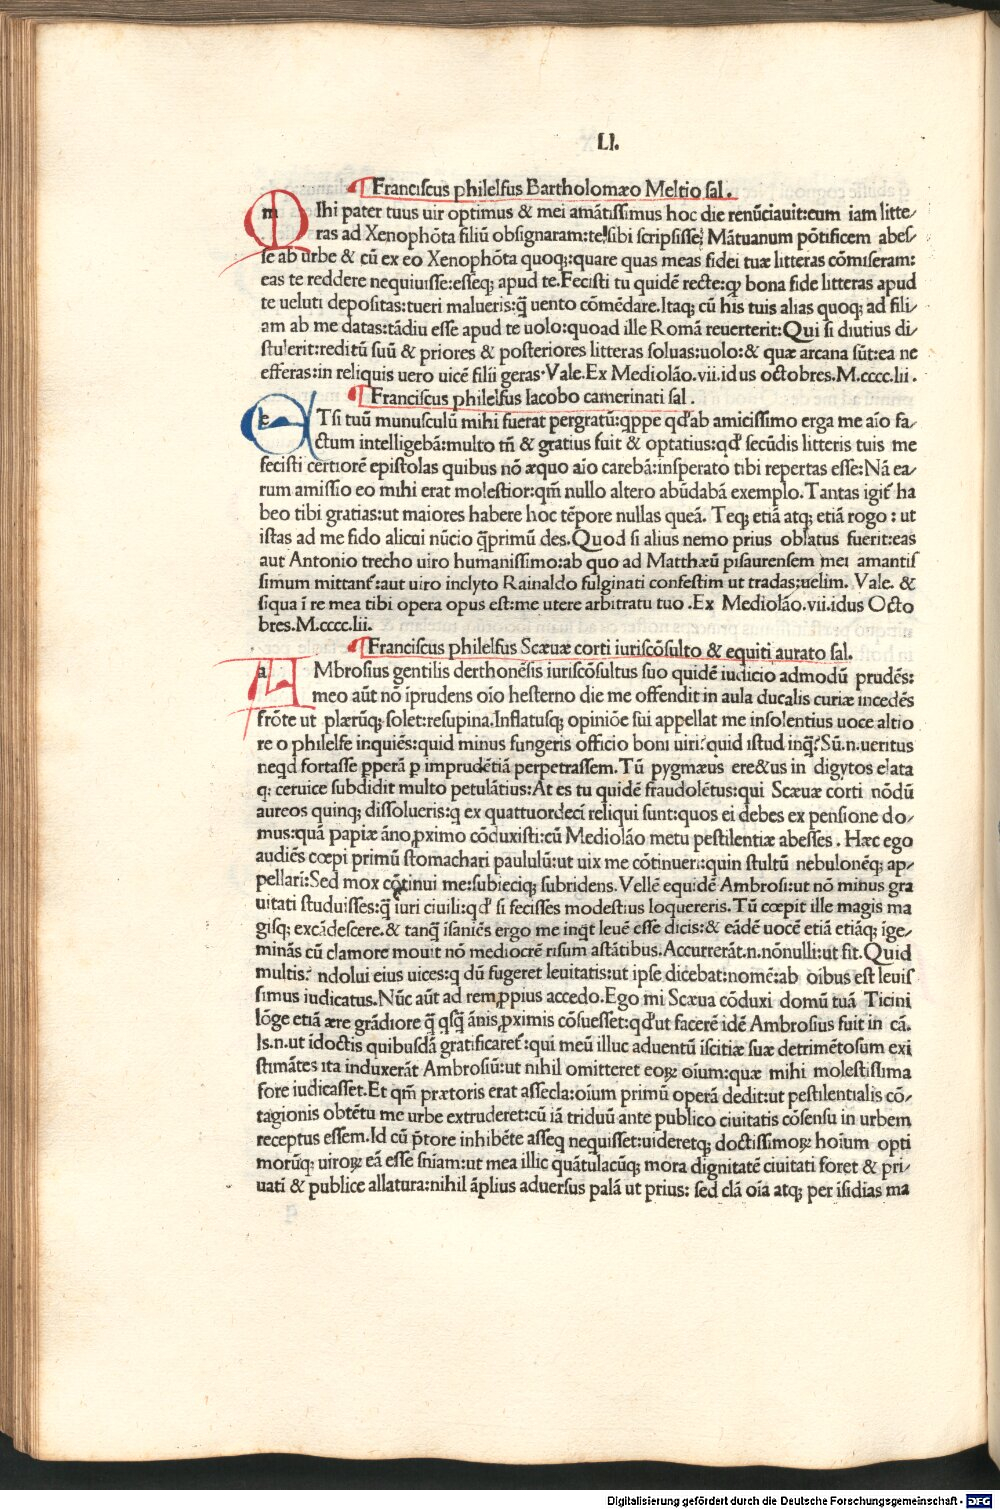 LI.
Franciscus philelfus Bartholomæo Meltio sal.
m Ihi pater tuus uir optimus & mei amātissimus hoc die renūciauit:eum iam litte/
ras ad Xenophōta filiū obsignaram:te sibi scripsisse Mātuanum pōtificem abes/
se ab urbe & cū ex eo Xenophōta quoq;:quare quas meas fidei tuæ litteras cōmiseram:
eas te reddere nequiuisse:esseq; apud te.Fecisti tu quidē recte:qꝙ bona fide litteras apud
te ueluti depositas:tueri malueris:q̄ uento cōmēdare.Itaq; cū his tuis alias quoq; ad fili/
am ab me datas:tādiu esse apud te uolo:quoad ille Romā reuerterit:Qui si diutius di/
stulerit:reditū suū & priores & posteriores litteras soluas:uolo:& quæ arcana sūt:ea ne
efferas:in reliquis uero uicē filii geras.Vale.Ex Mediolāo.vii.idus octobres.M.cccc.lii.
Franciscus philelfus Iacobo camerinati sal.
e Tsi tuū munusculū mihi fuerat pergratū:qppe qd'ab amicissimo erga me aīo fa/
ctum intelligebā:multo tn̄ & gratius fuit & optatius:qd' secūdis litteris tuis me
fecisti certiorē epistolas quibus nō æquo aīo carebā:insperato tibi repertas esse:Nā ea/
rum amissio eo mihi erat molestior:qm̄ nullo altero abūdabā exemplo.Tantas igit' ha
beo tibi gratias:ut maiores habere hoc tēpore nullas queā. Teq; etiā atq; etiā rogo:ut
istas ad me fido alicui nūcio q̄primū des.Quod si alius nemo prius oblatus fuerit:eas
aut Antonio trecho uiro humanissimo:ab quo ad Matthæū pisaurensem mei amantis
simum mittant':aut uiro inclyto Rainaldo fulginati confestim ut tradas:uelim. Vale. &
siqua ī re mea tibi opera opus est:me utere arbitratu tuo.Ex Mediolāo.vii.idus Octo
bres.M.cccc.lii.
Franciscus philelfus Scæuæ corti iuriscōsulto & equiti aurato sal.
a Mbrosius gentilis derthonēsis iuriscōsultus suo quidē iudicio admodū prudēs:
meo aūt nō īprudens oīo hesterno die me offendit in aula ducalis curiæ incedēs
frōte ut plærūq; solet:resupina.Inflatusq; opiniōe sui appellat me insolentius uoce altio
re o philelfe inquiēs:quid minus fungeris officio boni uiri?quid istud inq̄?Sū.n.ueritus
neqd fortasse ꝑperā ꝑ imprudētiā perpetrassem.Tū pygmæus ere&us in digytos elata
q; ceruice subdidit multo petulātius:At es tu quidē fraudolētus:qui Scæuæ corti nōdū
aureos quinq; dissolueris:q ex quattuordecī reliqui sunt:quos ei debes ex pensione do/
mus:quā papiæ āno ꝓximo cōduxisti:cū Mediolāo metu pestilentiæ abesses. Hæc ego
audiēs cœpi primū stomachari paululū:ut uix me cōtinueri:quin stultū nebulonēq; ap/
pellari:Sed mox cōtinui me:subieciq; subridens.Vellē equidē Ambrosi:ut nō minus gra
uitati studuisses:q̄ iuri ciuili:qd' si fecisses modestius loquereris.Tū cœpit ille magis ma
gisq; excādescere.& tanq̄ īsaniēs ergo me inqt leuē esse dicis:& eādē uocē etiā etiāq; ige/
minās cū clamore mouit nō mediocrē risum astātibus.Accurrerāt.n.nōnulli:ut fit.Quid
multis? ndolui eius uices:q dū fugeret leuitatis:ut ipse dicebat:nomē:ab oībus est leuis
simus iudicatus.Nūc aūt ad rem ꝓpius accedo.Ego mi Scæua cōduxi domū tuā Ticini
lōge etiā ære grādiore q̄ qsq̄ ānis ꝓximis cōsuesset:qd'ut facerē idē Ambrosius fuit in cā.
Is.n.ut īdoctis quibusdā gratificaret':qui meū illuc aduentū īscitiæ suæ detrimētosum exi
stimātes ita induxerāt Ambrosiū:ut nihil omitteret eoꝝ oīum:quæ mihi molestissima
fore iudicasset.Et qm̄ prætoris erat assecla:oīum primū operā dedit:ut pestilentialis cō/
tagionis obtētu me urbe extruderet:cū iā triduū ante publico ciuitatis cōsensu in urbem
receptus essem.Id cū p̄tore inhibēte asseq nequisset:uideretq; doctissimoꝝ hoīum opti
morūq; uiroꝝ eā esse sn̄iam:ut mea illic quātulacūq; mora dignitatē ciuitati foret & pri/
uatī & publice allatura:nihil āplius aduersus palā ut prius: sed clā oīa atq; per īsidias ma
Digitalisierung gefördert durch die Deutsche Forschungsgemeinschaft - DFG